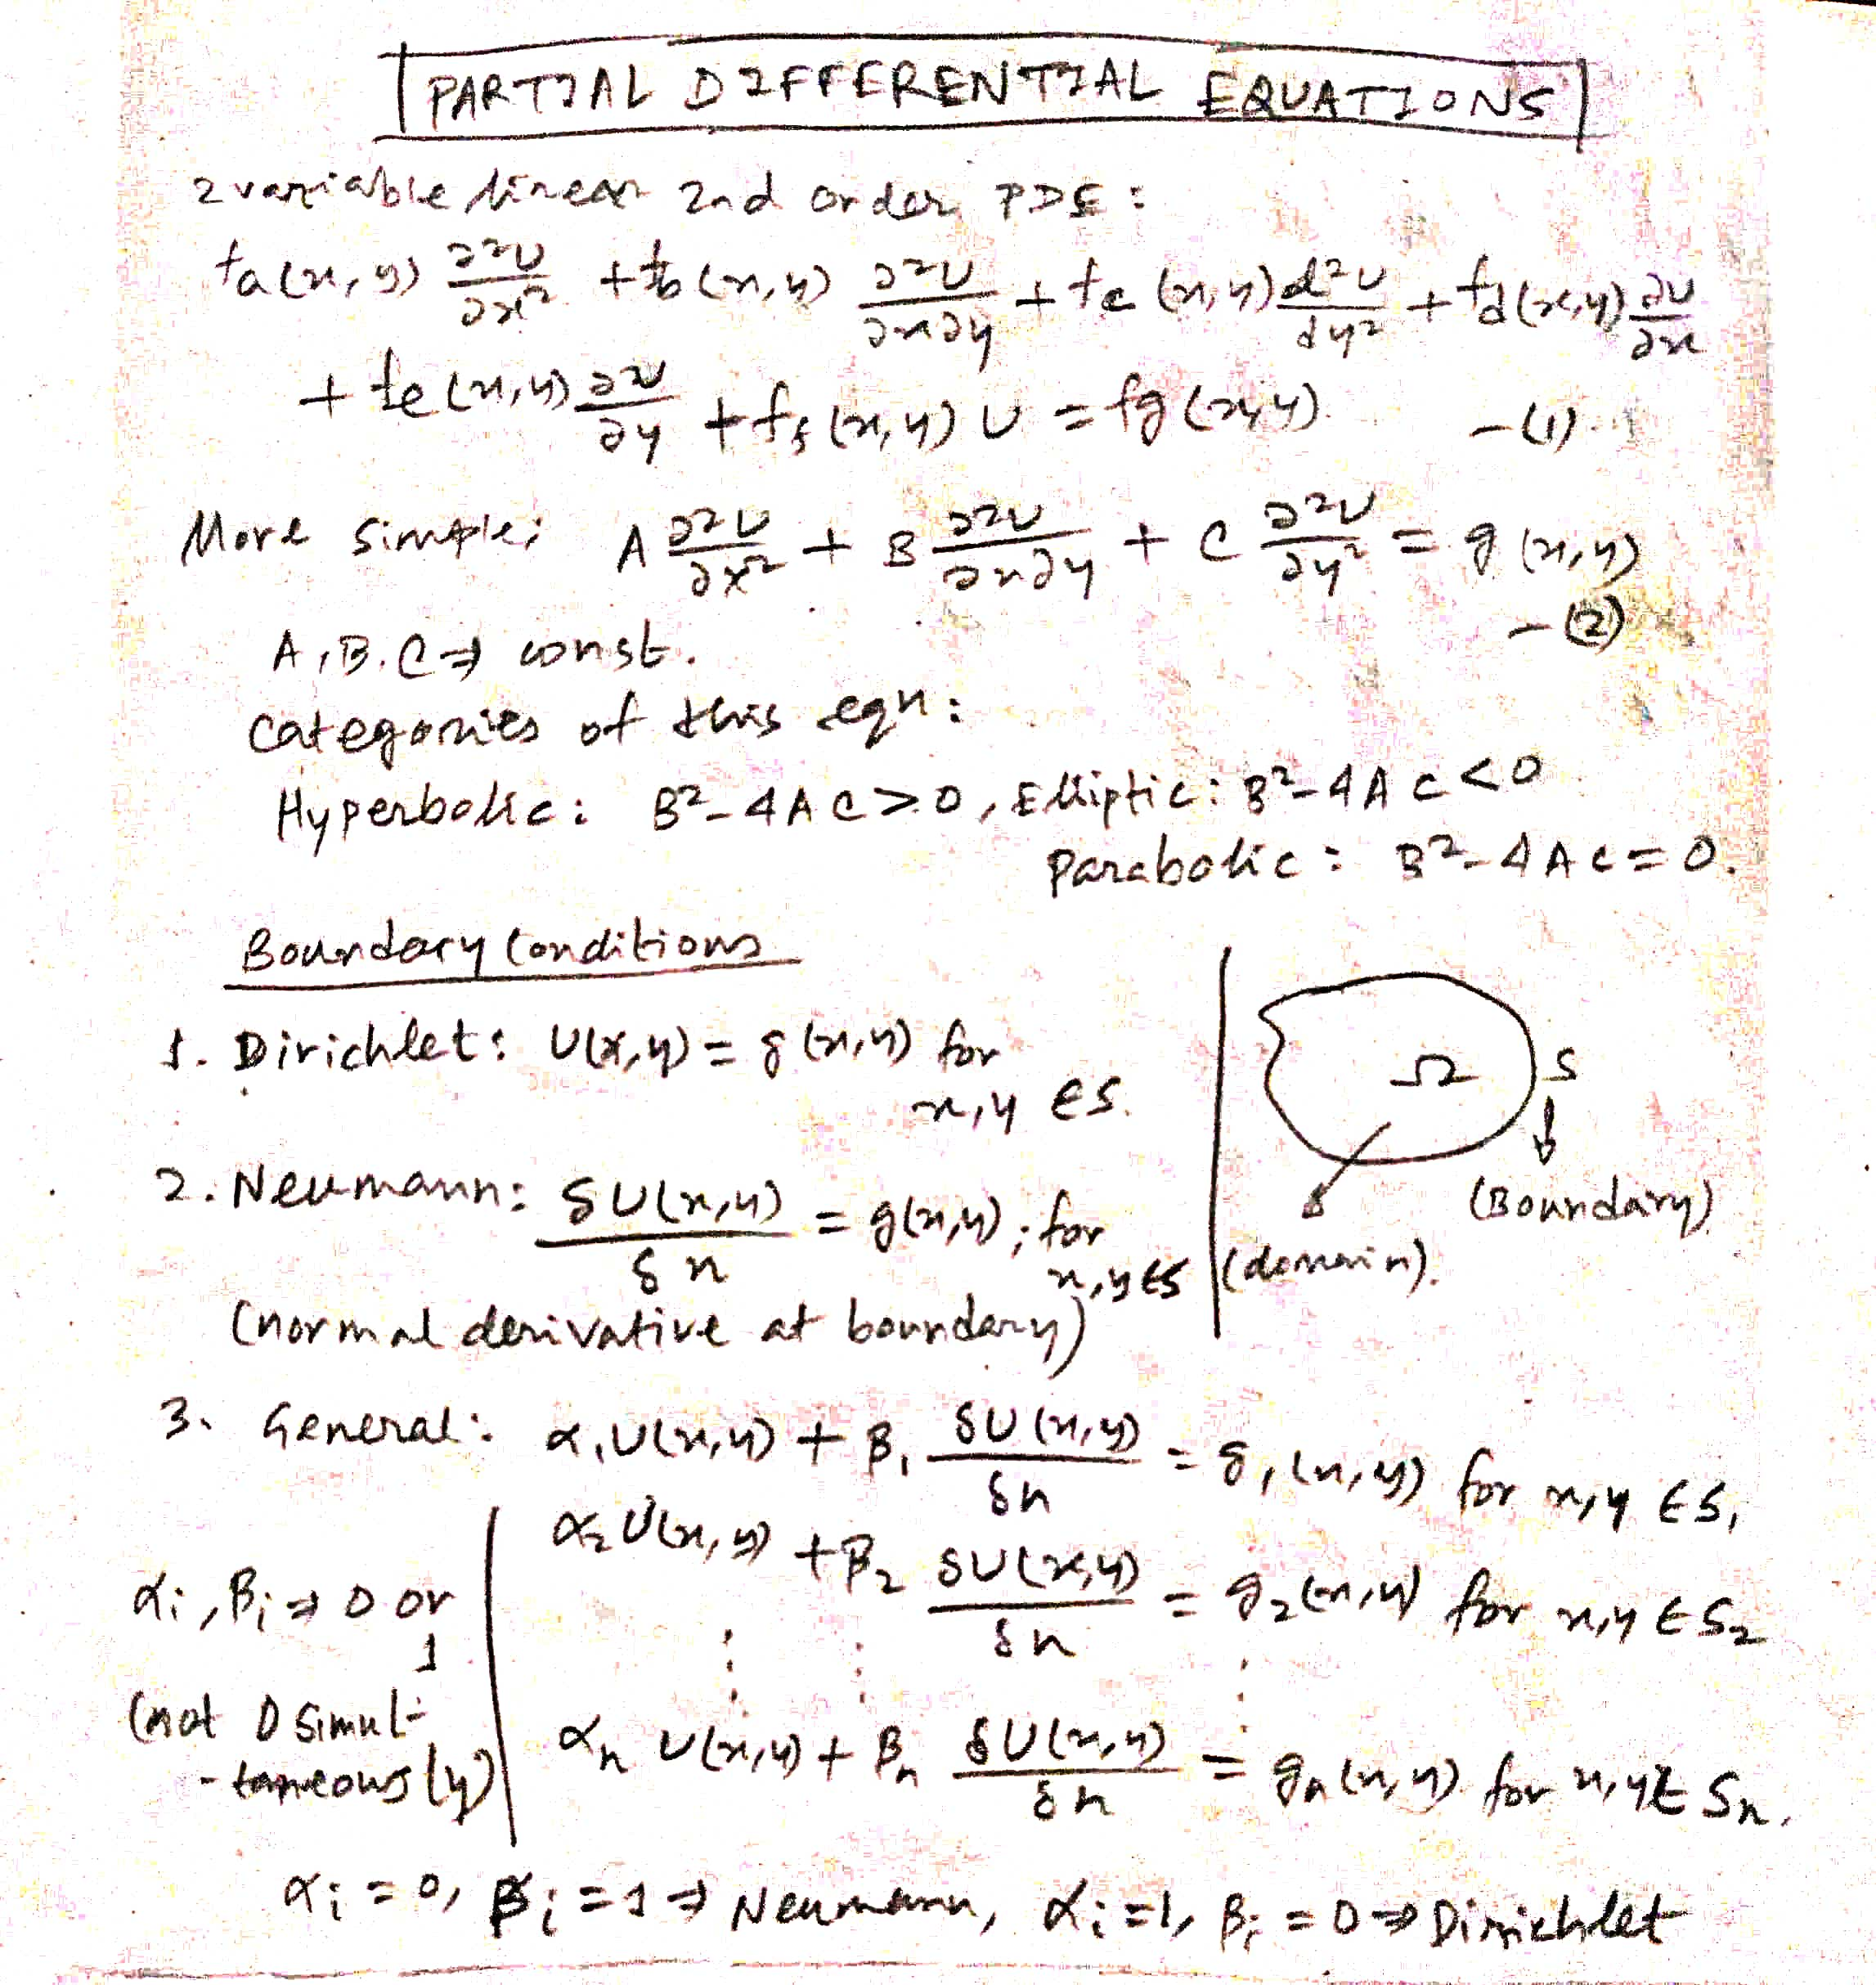 PARTIAL DIFFERENTIAL EQUATIONS
2 variable linear 2nd order PDE :
fa(x,y) ∂²U/∂x² + fb(x,y) ∂²U/∂x∂y + fc(x,y) d²U/dy² + fd(x,y) ∂U/∂x
+ fe(x,y) ∂U/∂y + ff(x,y) U = fg(x,y) —(1)
More simple: A ∂²U/∂x² + B ∂²U/∂x∂y + C ∂²U/∂y² = g(x,y)
—(2)
A, B, C ⇒ const.
Categories of this eqn:
Hyperbolic: B²-4AC>0, Elliptic: B²-4AC<0
Parabolic: B²-4AC=0.
Boundary Conditions
1. Dirichlet: U(x,y) = g(x,y) for
x,y ∈ S.
Ω S
2. Neumann: δU(x,y)/δn = g(x,y); for
x,y ∈ S
(Boundary)
(domain).
(normal derivative at boundary)
3. General: α₁U(x,y) + β₁ δU(x,y)/δn = g₁(x,y) for x,y ∈ S₁
α₂U(x,y) + β₂ δU(x,y)/δn = g₂(x,y) for x,y ∈ S₂
αi, βi ⇒ 0 or
1
⋮ ⋮ ⋮
(not 0 simul-
-taneously)
αn U(x,y) + βn δU(x,y)/δn = gn(x,y) for x,y ∈ Sn.
αi = 0, βi = 1 ⇒ Neumann, αi = 1, βi = 0 ⇒ Dirichlet